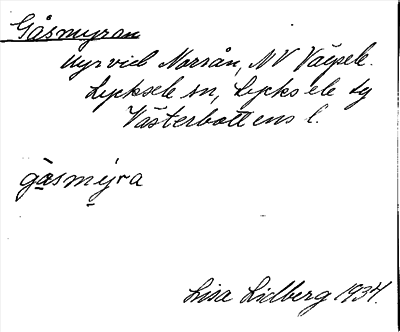 Gåsmyran
Myr vid Norrån, NV Vägsele.
Lycksele sn, Lycksele tg
Västerbottens l.
gåsmýra
Lisa Lidberg 1934.